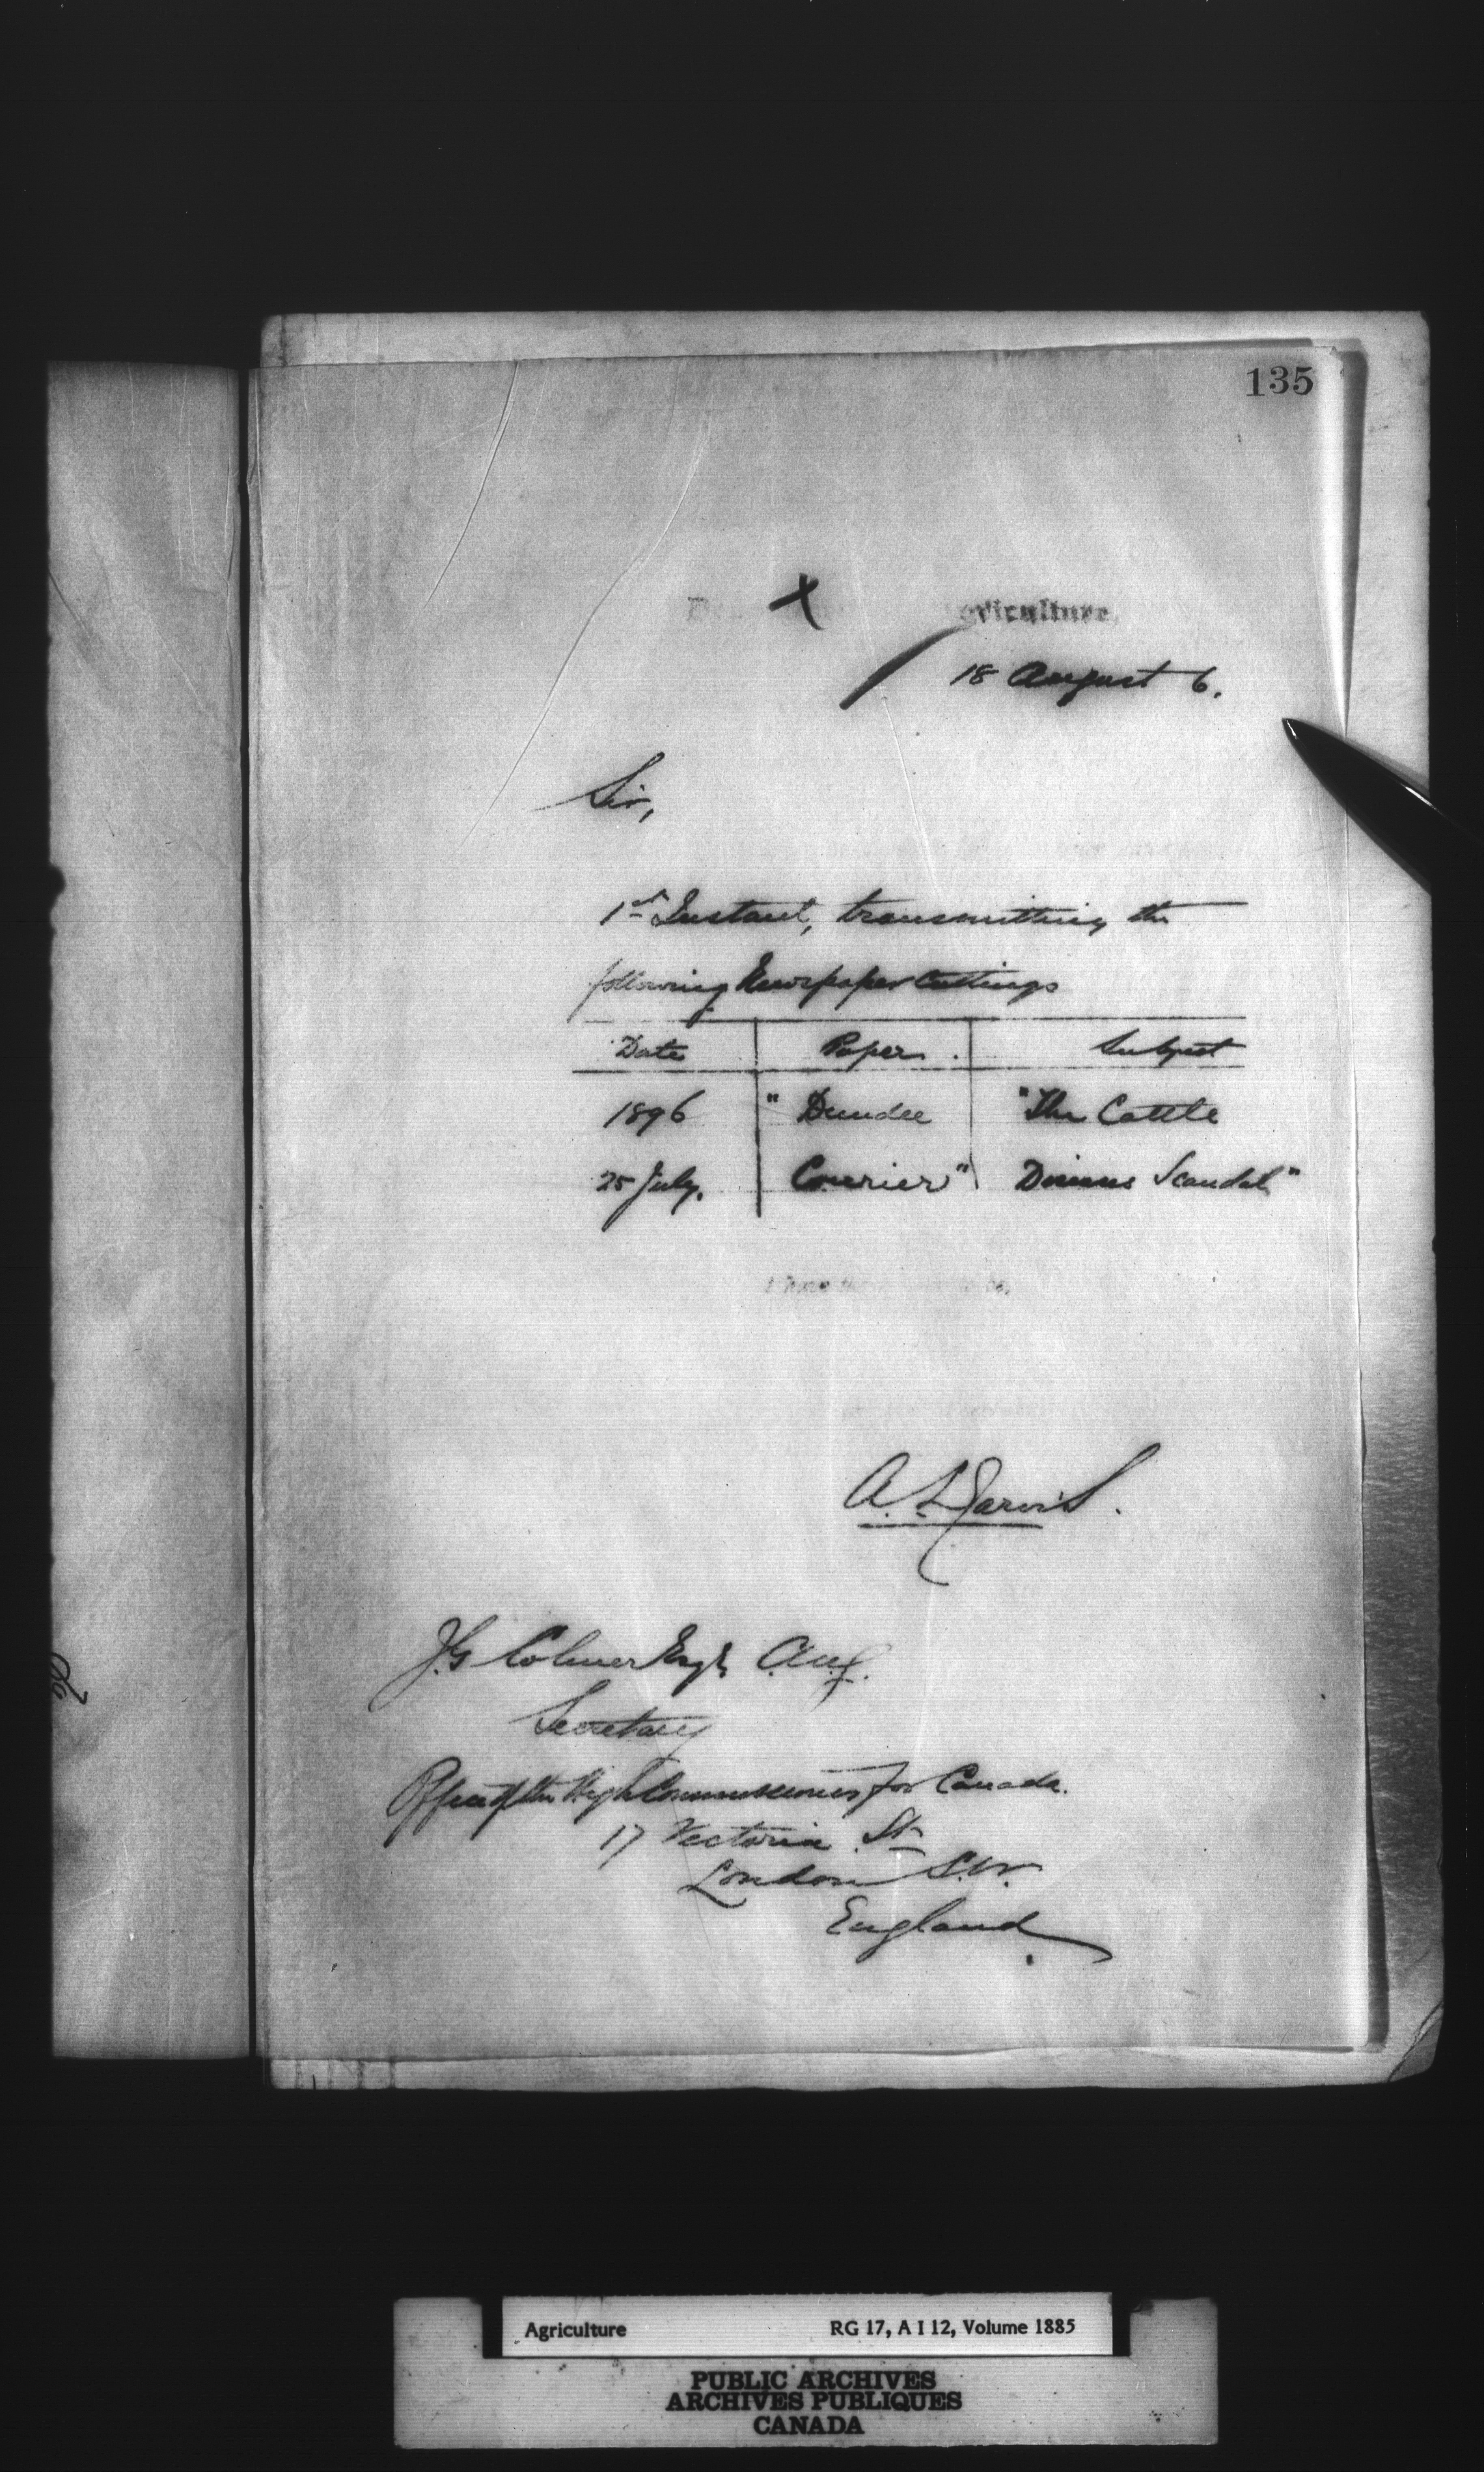 135
griculture
18 August 6.
Sir,
1st Instant, transmitting the
following Newspaper Cuttings
Date Paper. Subject
1896 " Dundee "The Cattle
25 July. Courier" Disease Scandal"
I have
A. L Jarvis.
J.G Colmer Esqr. C.M.G.
Secretary
Office of the High Commissioner for Canada.
17 Victoria St
London S.W.
England
Agriculture RG 17, A I 12, Volume 1885
PUBLIC ARCHIVES
ARCHIVES PUBLIQUES
CANADA